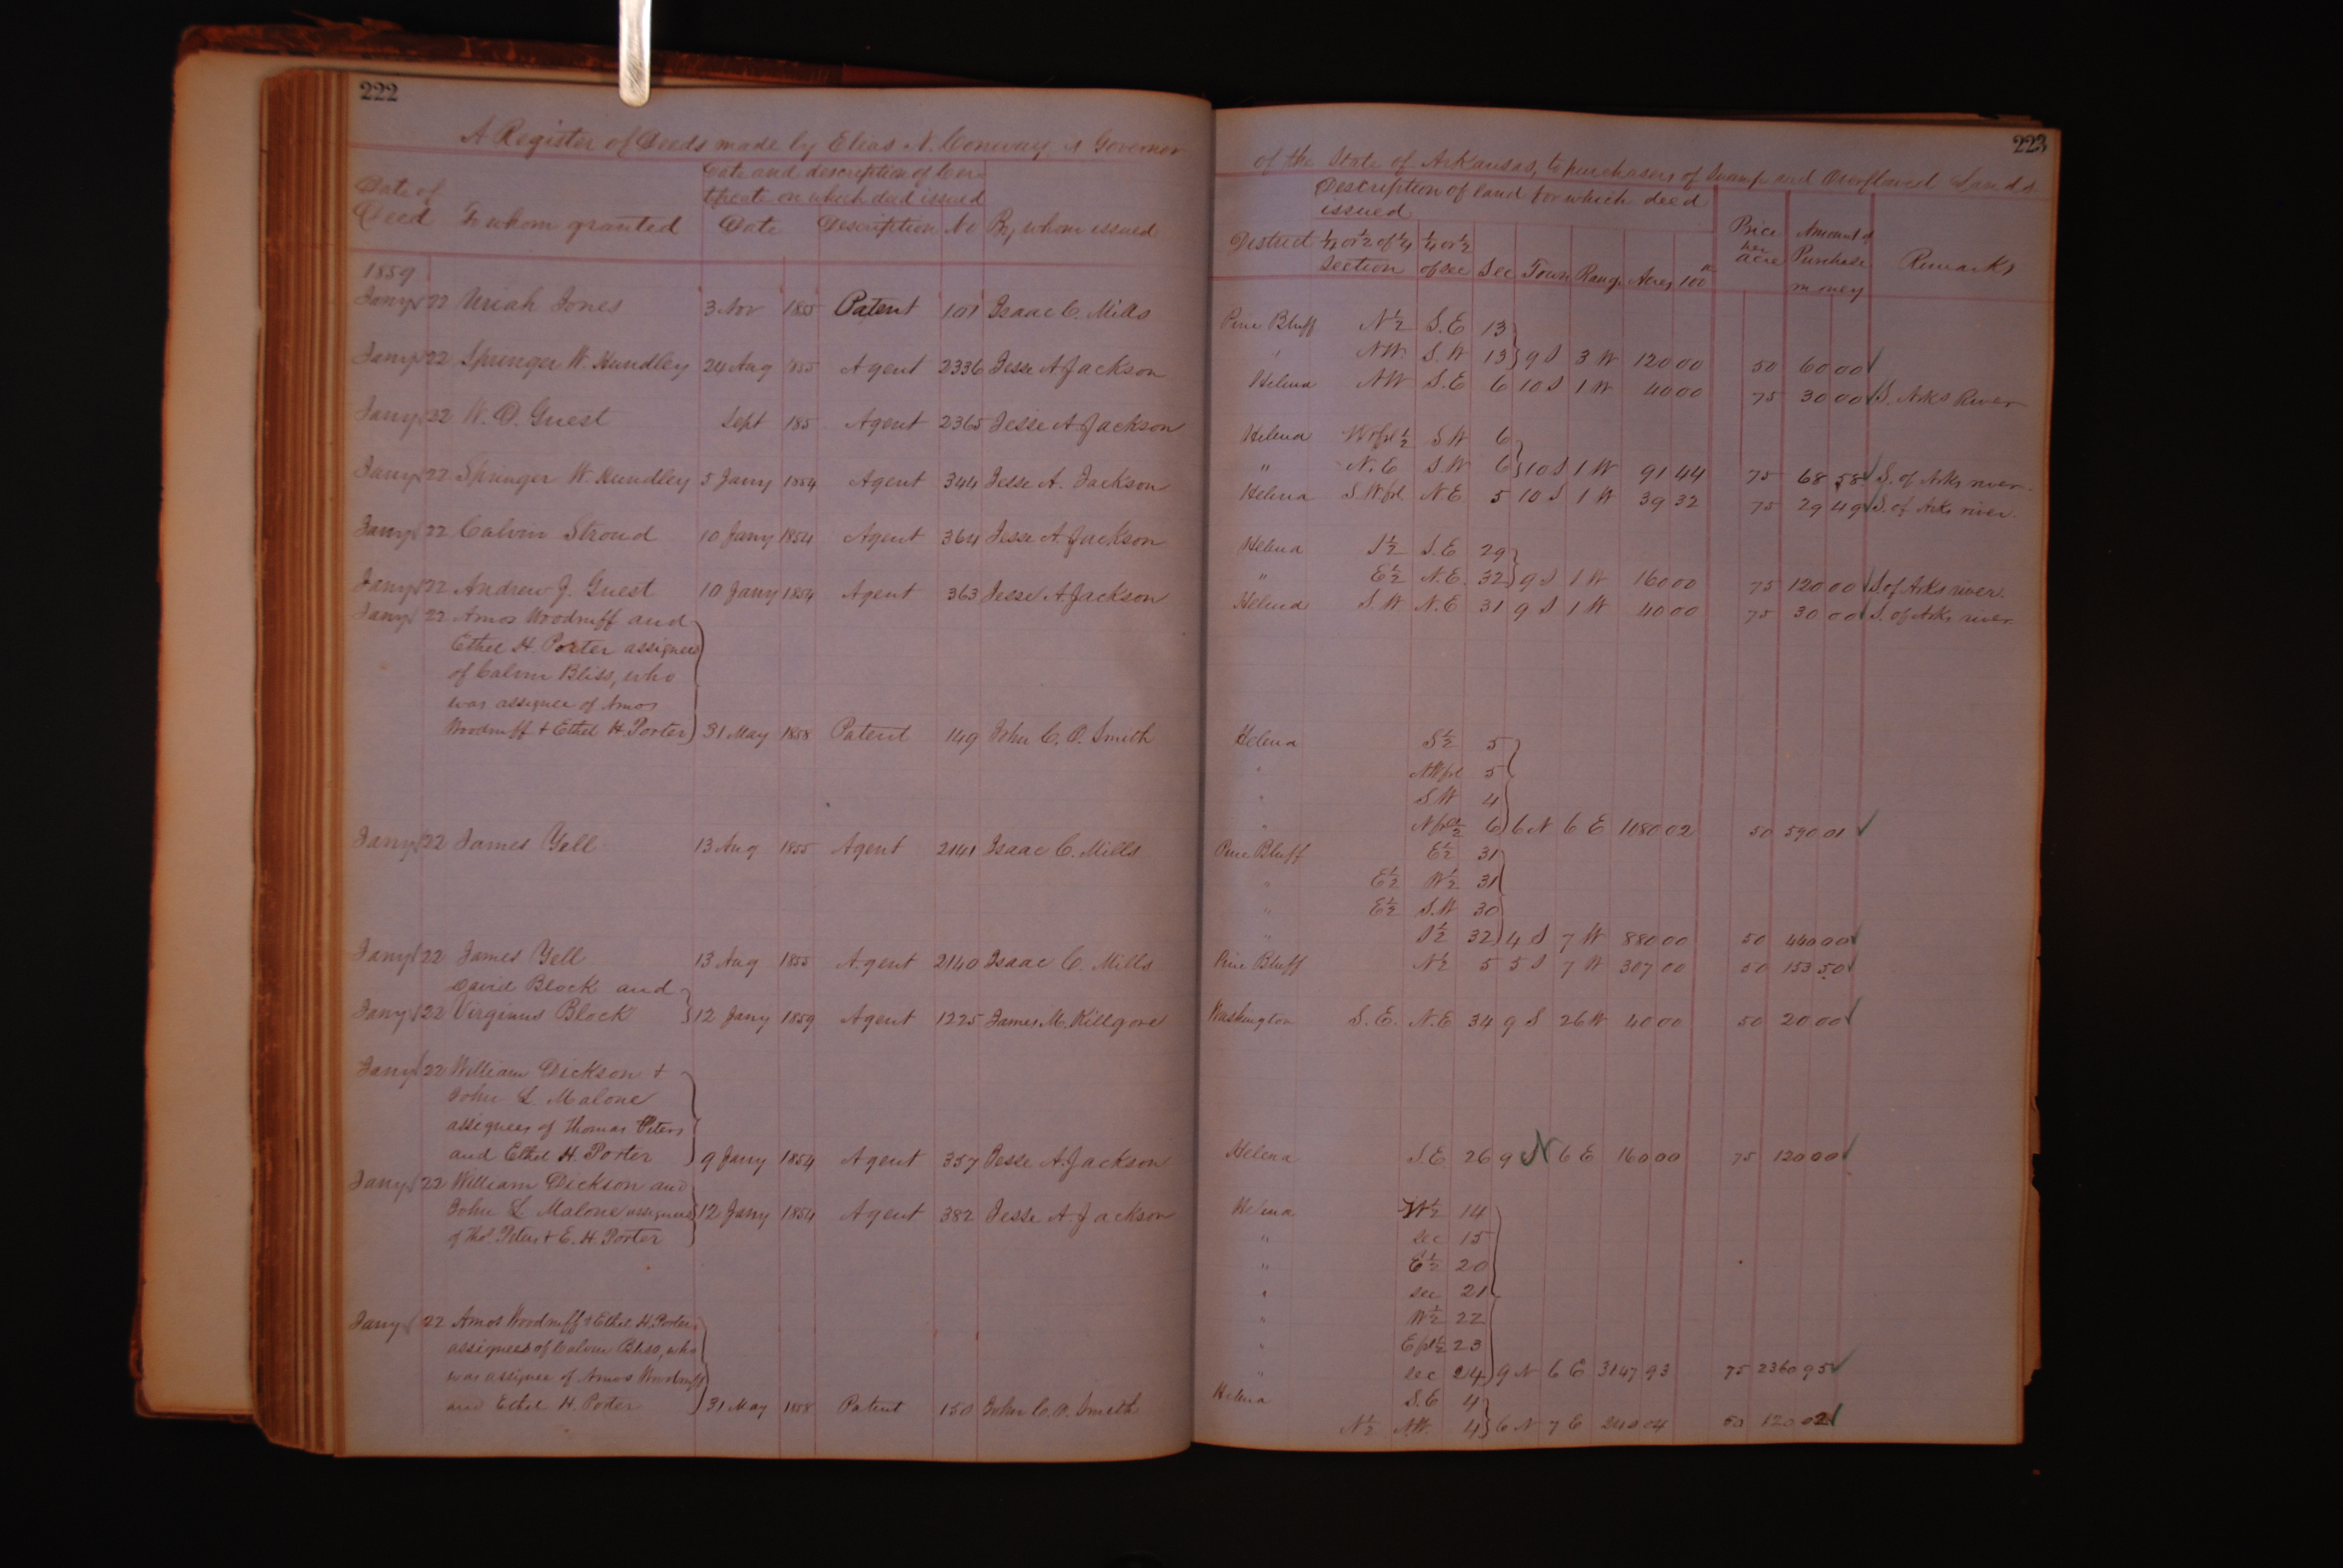 222
A Register of Deeds made by Elias N. Conway, as Governor
Date of Deed To whom granted
Date and description of Cer-
tificate on which deed issued
Date Description No By whom issued
1859
Jany 22 Uriah Jones 3 Nov 1855 Patent 101 Isaac C. Mills
Jany 22 Springer W. Hundley 24 Aug 1855 Agent 2336 Jesse A Jackson
Jany 22 W. D. Guest Sept 185 Agent 2365 Jesse A Jackson
Jany 22 Springer W. Hundley 5 Jany 1854 Agent 344 Jesse A. Jackson
Jany 22 Calvin Stroud 10 Jany 1854 Agent 364 Jesse A. Jackson
Jany 22 Andrew J. Guest 10 Jany 1854 Agent 363 Jesse A Jackson
Jany 22 Amos Woodruff and
Ethel H. Porter assignees
of Calvin Bliss, who
was assignee of Amos
Woodruff & Ethel H. Porter 31 May 1858 Patent 149 John C. O. Smith
Jany 22 James Yell 13 Aug 1855 Agent 2141 Isaac C. Mills
Jany 22 James Yell 13 Aug 1855 Agent 2140 Isaac C. Mills
David Block and
Jany 22 Virginus Block 12 Jany 1859 Agent 1225 James M. Killgore
Jany 22 William Dickson &
John L. Malone
assignees of Thomas Peters
and Ethel H. Porter 9 Jany 1854 Agent 357 Jesse A. Jackson
Jany 22 William Dickson and
John L. Malone assignees 12 Jany 1854 Agent 382 Jesse A. Jackson
of Thos. Peters & E. H. Porter
Jany 22 Amos Woodruff & Ethel H. Porter
assignees of Calvin Bliss, who
was assignee of Amos Woodruff
and Ethel H. Porter 31 May 1858 Patent 150 John C. O. Smith
223
of the State of Arkansas, to purchasers of Swamp and Overflowed Lands
Description of land for which deed
issued
District 1/4 or 1/2 of 1/4 section 1/4 or 1/2 of sec Sec Town Range Acres 100th Price per acre Amount of Purchase money Remarks
Pine Bluff N 1/2 S.E 13
" N.W. S.W 13 9 S 3 W 120 00 50 60 00
Helena N W S.E 6 10 S 1 W 40 00 75 30 00 S. Arks River
Helena W frl 1/2 S W 6
" N. E S.W 6 10 S 1 W 91 44 75 68 58 S. of Arks river.
Helena S.W frl N E 5 10 S 1 W 39 32 75 29 49 S. of Arks river.
Helena S 1/2 S. E 29
" E 1/2 N. E. 32 9 S 1 W 160 00 75 120 00 S. of Arks river.
Helena S. W N. E 31 9 S 1 W 40 00 75 30 00 S. of Arks river
Helena S 1/2 5
" N W frl 5
" S W 4
" N frl 1/2 6 6 N 6 E 1180 02 50 590 01
Pine Bluff E 1/2 31
" E 1/2 W 1/2 31
" E 1/2 S.W 30
" S 1/2 32 4 S 7 W 880 00 50 440 00
Pine Bluff N 1/2 5 5 S 7 W 307 00 50 153 50
Washington S. E. N. E 34 9 S 26 W 40 00 50 20 00
Helena S. E 26 9 N 6 E 160 00 75 120 00
Helena W 1/2 14
" sec 15
" E 1/2 20
" sec 21
" W 1/2 22
" E frl 1/2 23
" sec 24 9 N 6 E 3147 93 75 2360 95
Helena S. E 4
N 1/2 N.W. 4 6 N 7 E 240 04 50 120 02